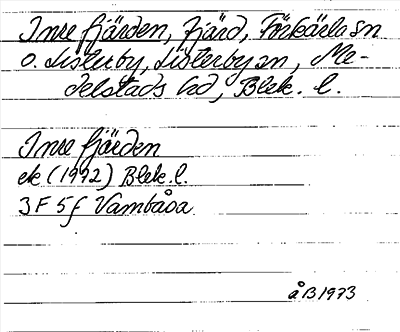 Inre fjärden, fjärd, Förkärla sn
o. Listerby, Listerby sn, Me-
delstads hd, Blek. l.
Inre fjärden
ek (1972) Blek. l.
3F 5f Vambåsa
åB 1973